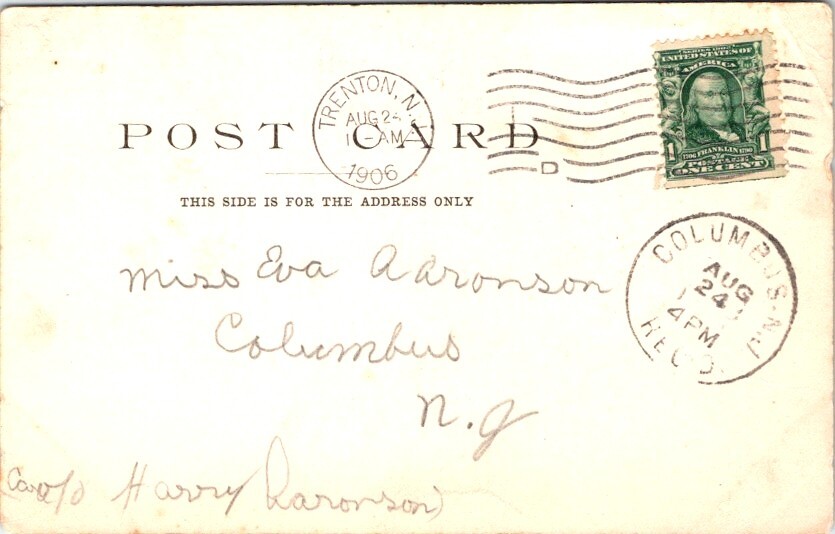 SERIES 1902
UNITED STATES OF
AMERICA
1 1706 FRANKLIN 1790 1
POSTAGE
ONE CENT
TRENTON, N.J.
AUG 24
AM
1906
POST CARD
D
THIS SIDE IS FOR THE ADDRESS ONLY
COLUMBUS, N.J.
AUG
24
4 PM
REC'D.
Miss Eva Aaronson
Columbus
N.J
Harry Aaronson